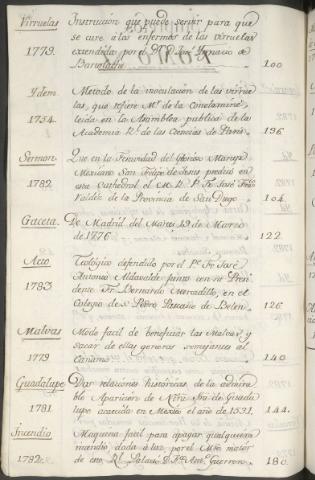 Virruelas Instruccion que puede servir para que
se cure a los enfermos de las viruelas
1779. extendida por el Dr. Dn. José Ignacio de
Bartolache 100
Ydem. Metodo de la inoculacion de las virue
las, que refiere Mr. de la Condamine
1754. leida en la Asamblea publica de la
Academia Rl. de las Ciencias de Paris. 136
Sermon. Que en la Festividad del Glorioso Martyr
Mexicano San Felipe de Jesus predicó en
1782. esta Cathedral el M. R. P. Fr. José Fran
Valdez de la Provincia de San Diego 104
Gaceta. De Madrid del Martes 19 de Marzo
de 1776 122
Acto Teológico defendido por el Pe. Fr. José
Antonio Aldavalde junto con su Presi
1783 dente Fr. Bernardo Mercadillo, en el
Colegio de Sn. Pedro Pascasio de Belen 126
Malvas Modo facil de beneficiar las Malvas y
sacar de ellas generos semejantes al
1779 Cañamo 140
Guadalupe Dos relaciones históricas de la admira
ble Aparicion de Nra. Sra. de Guada
1781. lupe acaecida en Mexico el año de 1531. 144.
Incendio Maquina facil para apagar qualquiera
incendio, dada á luz, por el
1782. de este Rl. Palacio Dn. Anto. Guerrero 180